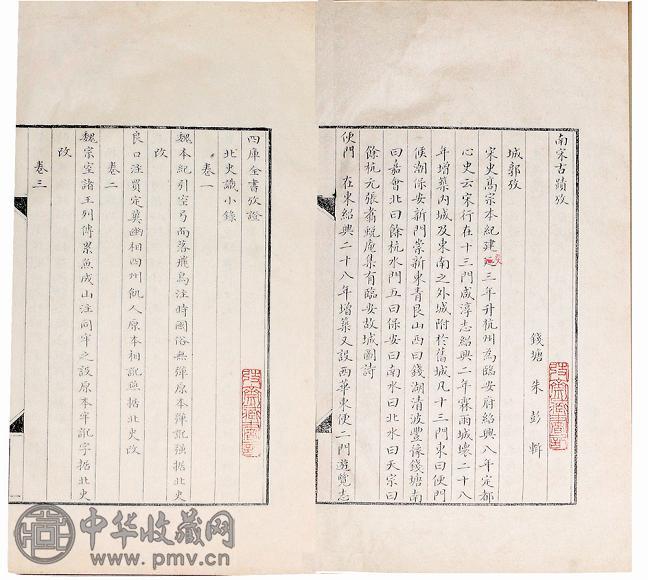 南宋古蹟攷
錢塘 朱彭輯
城郭攷
宋史高宗本紀建炎三年升杭州為臨安府紹興八年定都
心史云宋行在十三門咸淳志紹興二年霖雨城壞二十八
年增築內城及東南之外城附於舊城凡十三門東曰便門
候潮保安新門崇新東青艮山西曰錢湖清波豐豫錢塘南
曰嘉會北曰餘杭水門五曰保安曰南水曰北水曰天宗曰
餘杭元張翥蛻庵集有臨安故城圖詩
便門 在東紹興二十八年增築又設西華東便二門遊覽志
四庫全書攷證
北史識小錄
卷一
魏本紀引空弓而落飛鳥注時國俗無彈原本彈訛强據北史
改
良口注買定冀幽相四州飢人原本相訛無據北史改
卷二
魏宗室諸王列傳累魚成山注同牢之設原本牢訛字據北史
改
卷三
一
中华收藏网
www.pmv.cn